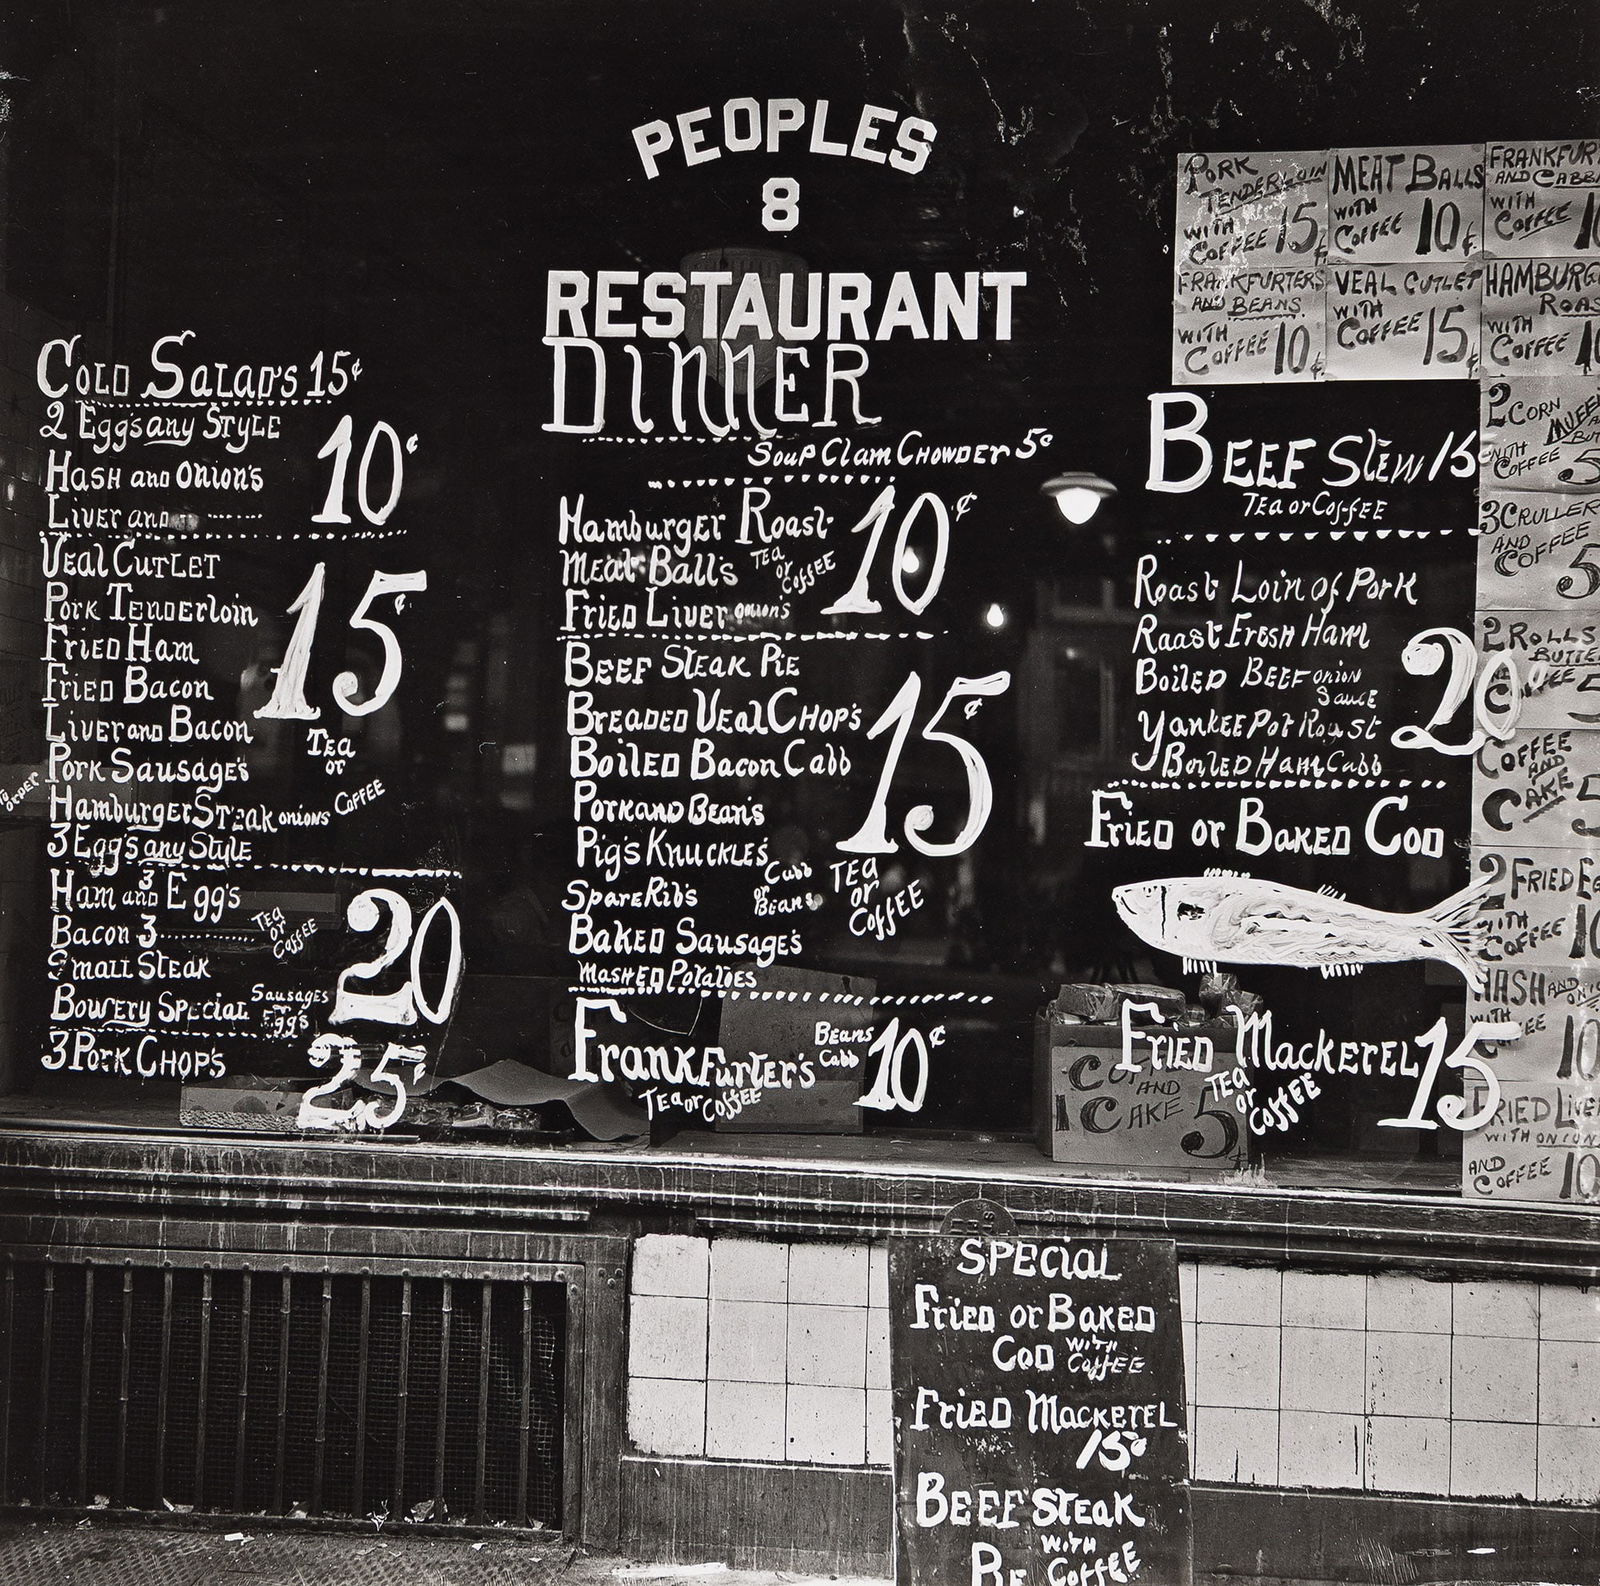 PEOPLES
8
RESTAURANT
DINNER
Soup Clam Chowder 5¢
Hamburger Roast
Meat Ball's Tea or Coffee
Fried Liver onion's
10¢
Beef Steak Pie
Breaded Veal Chop's
Boiled Bacon Cabb
Pork and Bean's
Pig's Knuckle's
Spare Rib's Cabb or Beans
Baked Sausage's
Mashed Potatoes
15¢
Tea or Coffee
Frankfurter's Beans Cabb 10¢
Tea or Coffee
Cold Salad's 15¢
2 Egg's any Style
Hash and Onion's
Liver and
10¢
Veal Cutlet
Pork Tenderloin
Fried Ham
Fried Bacon
Liver and Bacon
Pork Sausage's
Hamburger Steak onions
3 Egg's any Style
15¢
Tea or Coffee
To order
Ham and 3 Egg's
Bacon 3
Small Steak
Bowery Special Sausages Egg's
Tea or Coffee
20
3 Pork Chop's 25¢
Beef Stew 15
Tea or Coffee
Roast Loin of Pork
Raast Fresh Ham
Boiled Beef onion Sauce
Yankee Pot Roast
Boiled Ham Cabb
20¢
Fried or Baked Cod
Fried Mackerel 15
Tea or Coffee
AND
1 CAKE 5¢
PORK TENDERLOIN WITH COFFEE 15¢
MEAT BALLS WITH COFFEE 10¢
AND WITH COFFEE
FRANKFURTERS AND BEANS WITH COFFEE 10¢
VEAL CUTLET WITH COFFEE 15¢
WITH COFFEE
2 CORN
WITH COFFEE 5
3 CRULLER
AND COFFEE 5
2 ROLLS
5
COFFEE AND CAKE 5
2 FRIED
WITH COFFEE 10
HASH AND
WITH
10
FRIED
WITH ONION
AND COFFEE 10
SPECIAL
Fried or Baked
Cod with Coffee
Fried Mackerel
15¢
Beef Steak
with Coffee